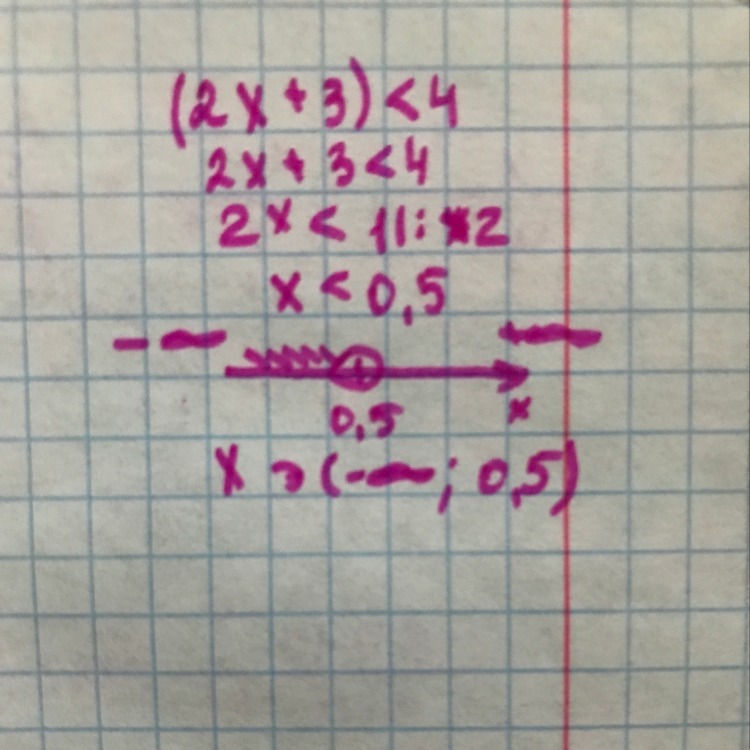 (2x + 3) < 4
2x + 3 < 4
2x < 1|: 2
x < 0,5
-∞ +∞
0,5 x
x э (-∞; 0,5)